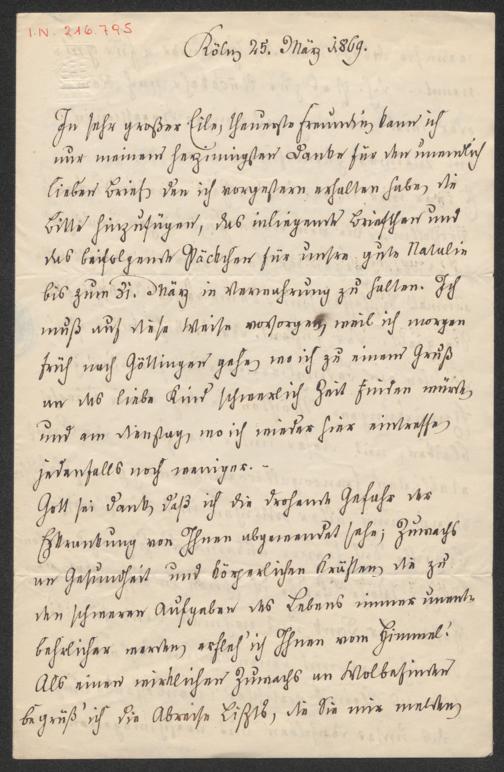 I.N. 216.795
Köln 25. März 1869.
In sehr großer Eile, theuerste Freundin, kann ich
nur meinem herzinnigsten Danke für den unendlich
lieben Brief, den ich vorgestern erhalten habe, die
Bitte hinzufügen, das inliegende Briefchen und
das beifolgende Päckchen für unsre gute Natalie
bis zum 31. März in Verwahrung zu halten. Ich
muß auf diese Weise vorsorgen, weil ich morgen
früh nach Göttingen gehe, wo ich zu einem Gruß
an das liebe Kind schwerlich Zeit finden würde,
und am Dienstag, wo ich wieder hier eintreffe,
jedenfalls noch weniger. –
Gott sei Dank, daß ich die drohende Gefahr der
Erkrankung von Ihnen abgewendet sehe; Zuwachs
an Gesundheit und körperlichen Kräften, die zu
den schweren Aufgaben des Lebens immer unent-
behrlicher werden, erfleh' ich Ihnen vom Himmel!
Als einen wirklichen Zuwachs an Wolbefinden
begrüß' ich die Abreise Lißts, die Sie mir melden,